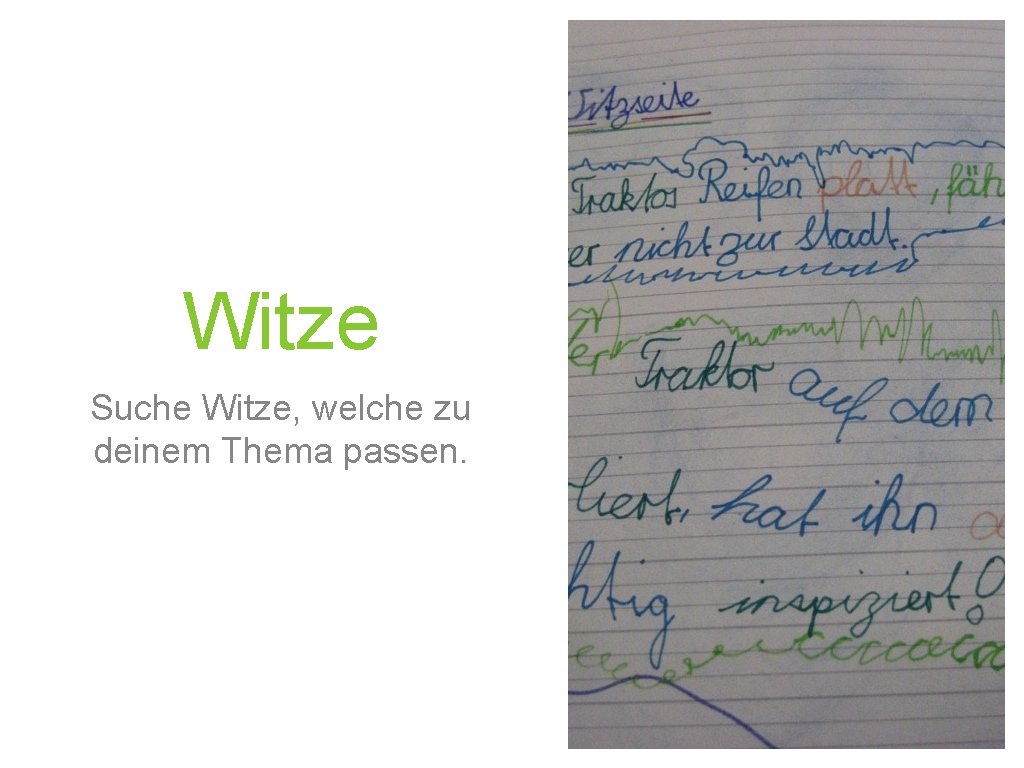 Witze
Suche Witze, welche zu
deinem Thema passen.
Witzseite
Traktos Reifen platt, fäh
er nicht zur Stadt.
Traktor auf dem
liert, hat ihn
htig inspiziert!